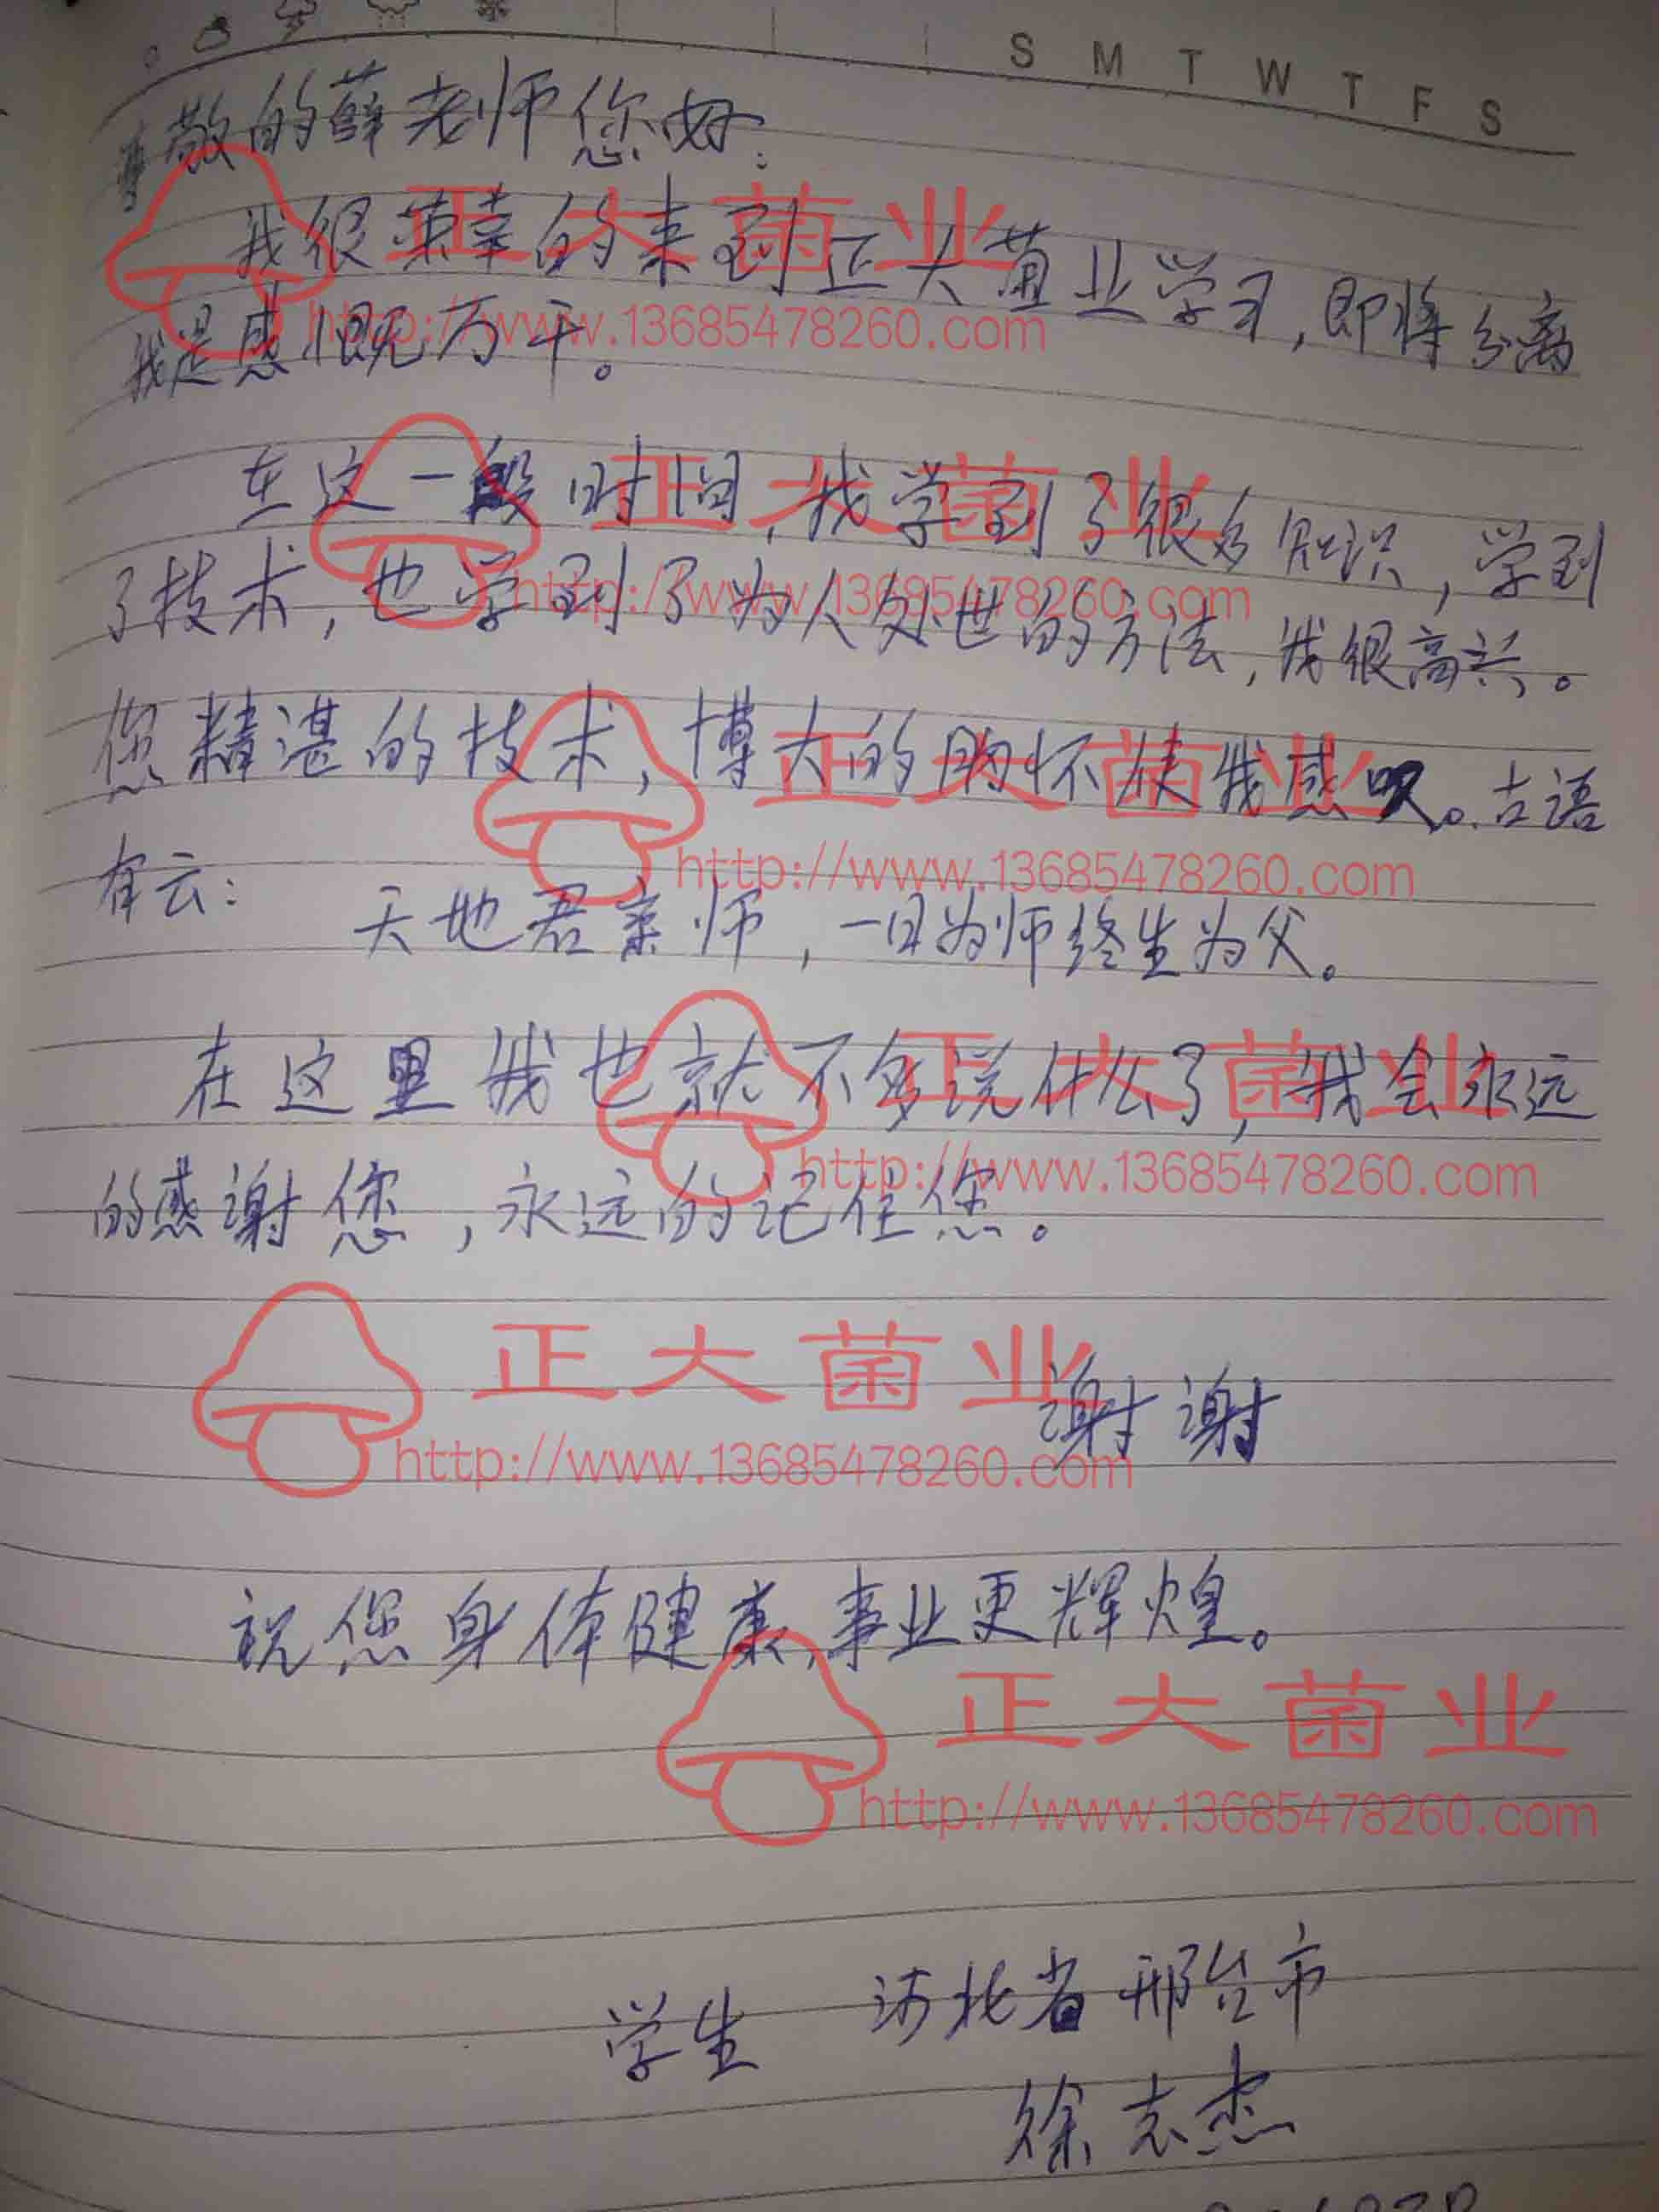 S M T W T F S
尊敬的薛老师您好：
我很荣幸的来到正大菌业学习，即将分离
我是感慨万千。
在这一段时间，我学到了很多知识，学到
了技术，也学到了为人处世的方法，我很高兴。
您精湛的技术，博大的胸怀使我感叹。古语
有云：天地君亲师，一日为师终生为父。
在这里我也就不多说什么了，我会永远
的感谢您，永远的记住您。
谢谢
祝您身体健康，事业更辉煌。
学生 河北省邢台市
徐志杰
正大菌业
http://www.13685478260.com
正大菌业
http://www.13685478260.com
正大菌业
http://www.13685478260.com
正大菌业
http://www.13685478260.com
正大菌业
http://www.13685478260.com
正大菌业
http://www.13685478260.com